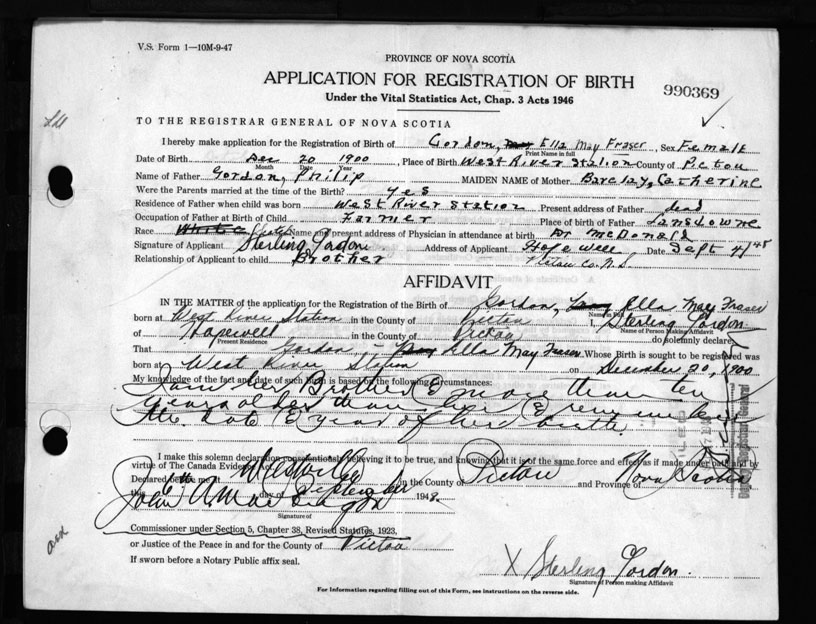 V.S. Form 1—10M-9-47
PROVINCE OF NOVA SCOTIA
APPLICATION FOR REGISTRATION OF BIRTH
Under the Vital Statistics Act, Chap. 3 Acts 1946
990369
TO THE REGISTRAR GENERAL OF NOVA SCOTIA
I hereby make application for the Registration of Birth of Gordon, Ella May Fraser, Sex Female
Print Name in full
Date of Birth Dec 20 1900, Place of Birth West River Station County of Pictou
Month Day Year
Name of Father Gordon, Philip MAIDEN NAME of Mother Barclay, Catherine
Were the Parents married at the time of the Birth? Yes
Residence of Father when child was born West River Station Present address of Father dead
Occupation of Father at Birth of Child Farmer Place of birth of Father Lansdowne
Race White Name and present address of Physician in attendance at birth Dr. McDonald
Signature of Applicant Sterling Gordon Address of Applicant Hopewell Date Sept 4/48
Relationship of Applicant to child Brother Pictou Co. N.S.
AFFIDAVIT
IN THE MATTER of the application for the Registration of Birth of Gordon, Ella May Fraser
born at West River Station in the County of Pictou I, Sterling Gordon
Name of Person Making Affidavit
of Hopewell in the County of Pictou do solemnly declare:
Present Residence
That Gordon - Ella May Fraser Whose Birth is sought to be registered was
born at West River Station on December 20, 1900
My knowledge of the fact and date of such Birth is based by the following circumstances:
I am her Brother & more than ten
years older than her & remember
the date & year of her birth.
I make this solemn declaration conscientiously believing it to be true, and knowing that it is of the same force and effect as if made under oath and by
virtue of The Canada Evidence Act.
Declared before me at Westville in the County of Pictou and Province of Nova Scotia
the 6th day of September 1948
Signature of
Commissioner under Section 5, Chapter 38, Revised Statutes, 1923,
or Justice of the Peace in and for the County of Pictou
If sworn before a Notary Public affix seal.
X Sterling Gordon
Signature of Person making Affidavit
For Information regarding filling out of this Form, see instructions on the reverse side.
Deputy Registrar General